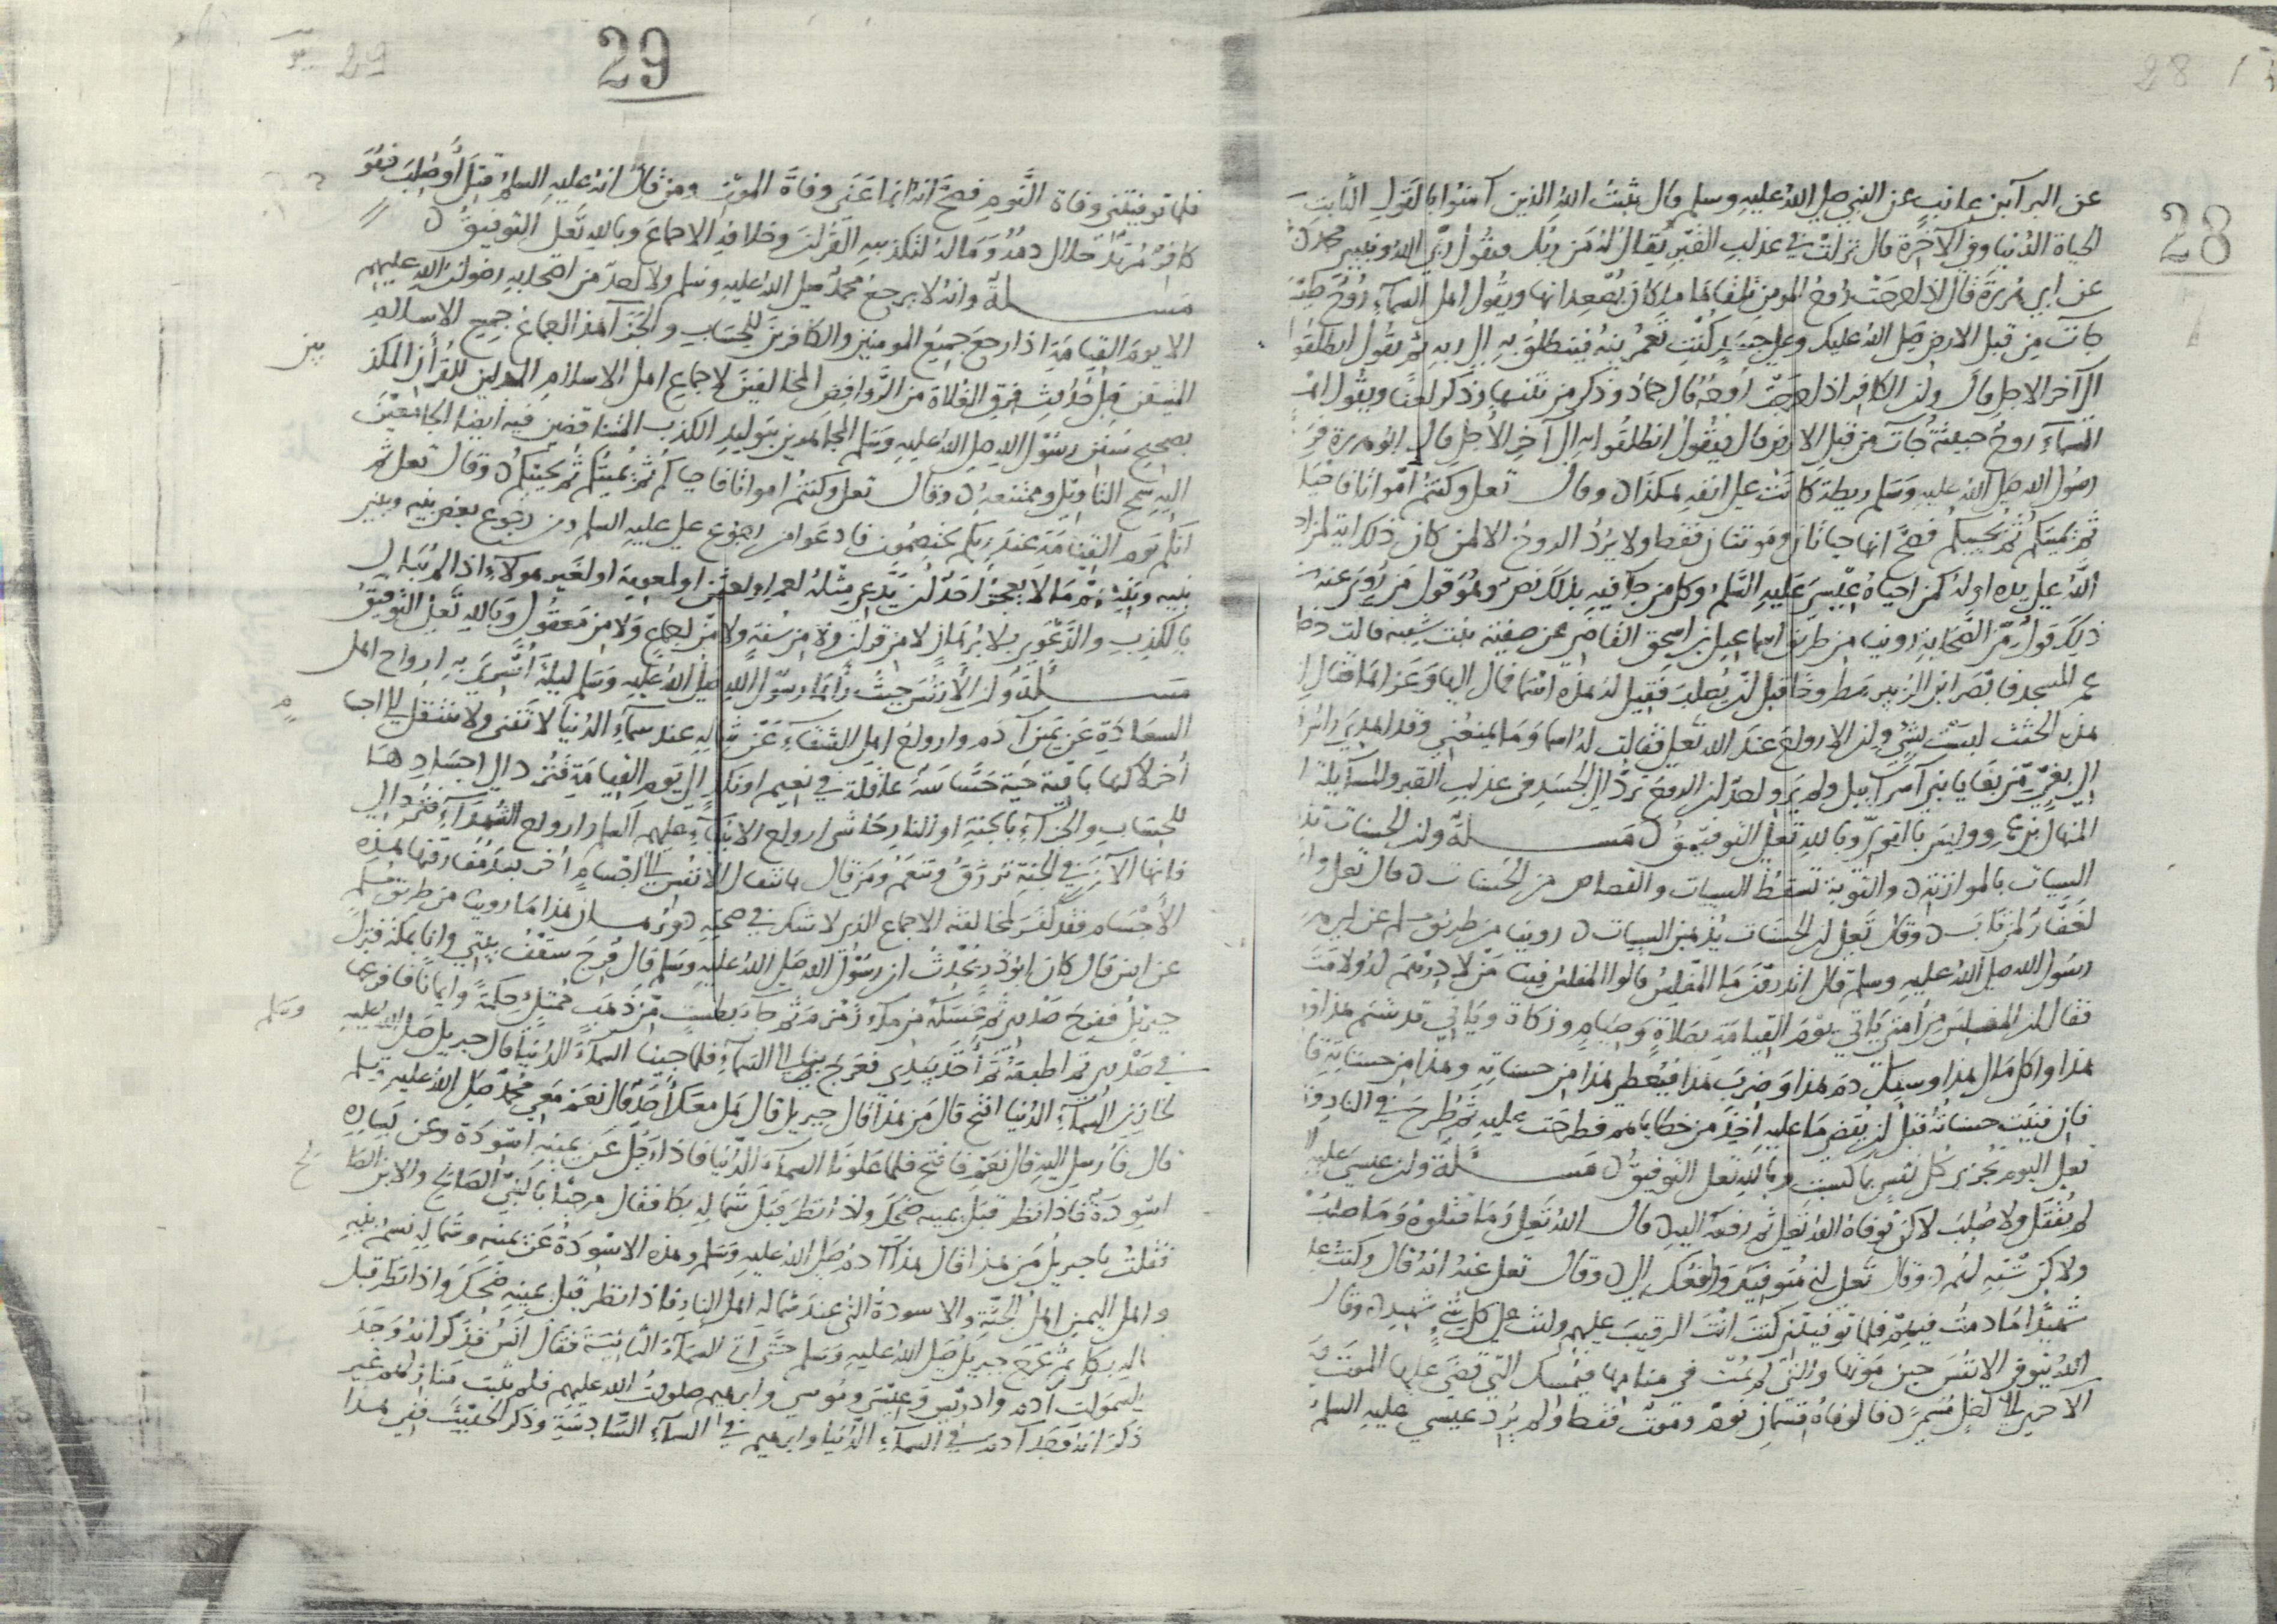 28
عن البرآ بن عازب عن النبي صلى الله عليه وسلم قال يثبت الله الذين آمنوا بالقول الثابت
الحياة الدنيا وفي الآخرة قال نزلت في عذاب القبر يقال له من ربك فيقول ربي الله ونبيي محمد
عن ابي هريرة قال اذا خرجت روح المومن تلقاها ملكان يصعدانها ويقول اهل السمآء روح طيبة
جآت من قبل الارض صلى الله عليك وعلى جسد كنت تعمرينه فينطلق به الى ربه ثم يقول انطلقوا
الى آخر الاجل قال وان الكافر اذا خرجت روحه قال حماد وذكر من نتنها وذكر لعنا ويقول اهل
السمآء روح خبيثة جآت من قبل الارض قال فيقول انطلقوا به الى آخر الاجل قال ابو هريرة فرد
رسول الله صلى الله عليه وسلم ريطة كانت على انفه هكذا وقال تعلى وكنتم امواتا فاحياكم
ثم يميتكم ثم يحييكم فصح انها حياتان وموتتان فقط ولا يرد الروح الا لمن كان ذلك اية له
الله على يده او له كمن احياه عيسى عليه السلم وكل من جآ فيه بذلك نص وهو قول من روي عنه
ذلك قول من الصحابة روينا من طريق اسماعيل بن اسحق القاضي عن صفية بنت شيبة قالت دخل
عمر المسجد فابصر ابن الزبير مطروحا قبل ان يصلب فقيل له هذه اسما فمال اليها وعزاها فقال ان
هذه الجثث ليست بشي وان الارواح عند الله تعلى فقالت له اسما وما يمنعني وقد اهدي راس
الى بغي من بغايا بني آسرآئيل ولم يرو احد ان الروح ترد الى الجسد في عذاب القبر والمسآيلة الا
المنهال بن عمرو وليس بالقوي وبالله تعلى التوفيق مسئلة وان الحسنات تذهب
السيات بالموازنة والتوبة تسقط السيات والقصاص من الحسنات قال تعلى واني
لغفار لمن تاب وقال تعلى ان الحسنات يذهبن السيات روينا من طريق مسلم عن ابي هريرة
رسول الله صلى الله عليه وسلم قال اتدرون ما المفلس قالوا المفلس فينا من لا درهم له ولا متاع
فقال ان المفلس من امتي ياتي يوم القيامة بصلاة وصيام وزكاة وياتي قد شتم هذا
هذا واكل مال هذا وسفك دم هذا وضرب هذا فيعطى هذا من حسناته وهذا من حسناته
فان فنيت حسناته قبل ان يقضى ما عليه اخذ من خطاياهم فطرحت عليه ثم طرح في النار
تعلى اليوم تجزى كل نفس بما كسبت وبالله تعلى التوفيق مسئلة وان عيسى عليه
لم يقتل ولا صلب لاكن توفاه الله تعلى ثم رفعه اليه قال الله تعلى وما قتلوه وما صلبوه
ولاكن شبه لهم وقال تعلى اني متوفيك ورافعك الي وقال تعلى عنه انه قال وكنت عليهم
شهيدا ما دمت فيهم فلما توفيتني كنت انت الرقيب عليهم وانت على كل شي شهيد وقال
الله يتوفى الانفس حين موتها والتي لم تمت في منامها فيمسك التي قضى عليها الموت
الاخرى الى اجل مسمى فالوفاة قسمان نوم وموت فقط ولم يرد عيسى عليه السلم
29
فلما توفيتني وفاة النوم فصح انه انما عنى وفاة الموت ومن قال انه عليه السلم قتل أو صلب فهو
كافر مرتد حلال دمه وماله لتكذيبه القران وخلافه الاجماع وبالله تعلى التوفيق
مسئلة وانه لا يرجع محمد صلى الله عليه وسلم ولا احد من اصحابه رضوان الله عليهم
الا يوم القيامة اذا رجع جميع المومنين والكافرين للحساب والجزآ هذا اجماع جميع الاسلام
المتيقن قبل حدوث فرق الغلاة من الروافض المخالفين لاجماع اهل الاسلام المبدلين للقرآن المكذ بين
بصحيح سنن رسول الله صلى الله عليه وسلم المجاهرين بتوليد الكذب المتناقضين فيه ايضا
وقال تعلى وكنتم امواتا فاحياكم ثم يميتكم ثم يحييكم وقال تعلى ثم
انكم يوم القيامة عند ربكم تختصمون فادعوا من رجوع علي عليه السلم ومن رجوع بعض بنيه وبني
بنيه وبنيهم ما لا يعجز احد ان يدعي مثله لعمر او لعثمن او لمعوية او لغير هولآء اذا لم يبال
بالكذب والدعوى بلا برهان لا من قران ولا من سنة ولا من اجماع ولا من معقول وبالله تعلى التوفيق
مسئلة وان الانفس حيث رأها رسول الله صلى الله عليه وسلم ليلة أسري به ارواح اهل
السعادة عن يمين آدم وارواح اهل الشقآء عن شماله عند سمآء الدنيا لا تفنى ولا تنتقل الى اجسام
أخر لاكنها باقية حية حساسة عاقلة في نعيم او نكد الى يوم القيامة فترد الى اجسادها
للحساب والجزآء بالجنة او النار حاشى ارواح الانبيآء عليهم السلم وارواح الشهدآء
فانها الآن في الجنة ترزق وتنعم ومن قال بانتقال الانفس الى اجسام أخر بعد مفارقتها هذه
الأجسام فقد كفر لمخالفته الاجماع الذي لا شك في صحته برهان هذا ما روينا من طريق مسلم
عن انس قال كان ابو ذر يحدث ان رسول الله صلى الله عليه وسلم قال فرج سقف بيتي وانا بمكة فنزل
جبريل ففرج صدري ثم غسله من مآء زمزم ثم جآء بطست من ذهب ممتلئ حكمة وايمانا فافرغها
في صدري ثم اطبقه ثم أخذ بيدي فعرج بي الى السمآء فلما جينا السمآء الدنيا قال جبريل صلى الله عليه وسلم
لخازن السمآء الدنيا افتح قال من هذا قال جبريل قال هل معك أحد قال نعم معي محمد صلى الله عليه وسلم
قال فأرسل اليه قال نعم ففتح فلما علونا السمآء الدنيا فاذا رجل عن يمينه اسودة وعن يساره
اسودة فاذا نظر قبل يمينه ضحك واذا نظر قبل شماله بكا فقال مرحبا بالنبي الصالح والابن الصالح
فقلت يا جبريل من هذا قال هذا آدم صلى الله عليه وسلم وهذه الاسودة عن يمينه وشماله نسم بنيه
واهل اليمين اهل الجنة والاسودة التي عند شماله اهل النار فاذا نظر قبل يمينه ضحك واذا نظر قبل
شماله بكا ثم عرج جبريل صلى الله عليه وسلم حتى اتى السمآء الثانية فقال انس فذكر انه وجد
السموات آدم وادريس وعيسى وموسى وابرهيم صلوات الله عليهم فلم يثبت منازلهم غير
ذكر انه وجد آدم في السمآء الدنيا وابرهيم في السمآء السادسة وذكر الحديث ففي هذا